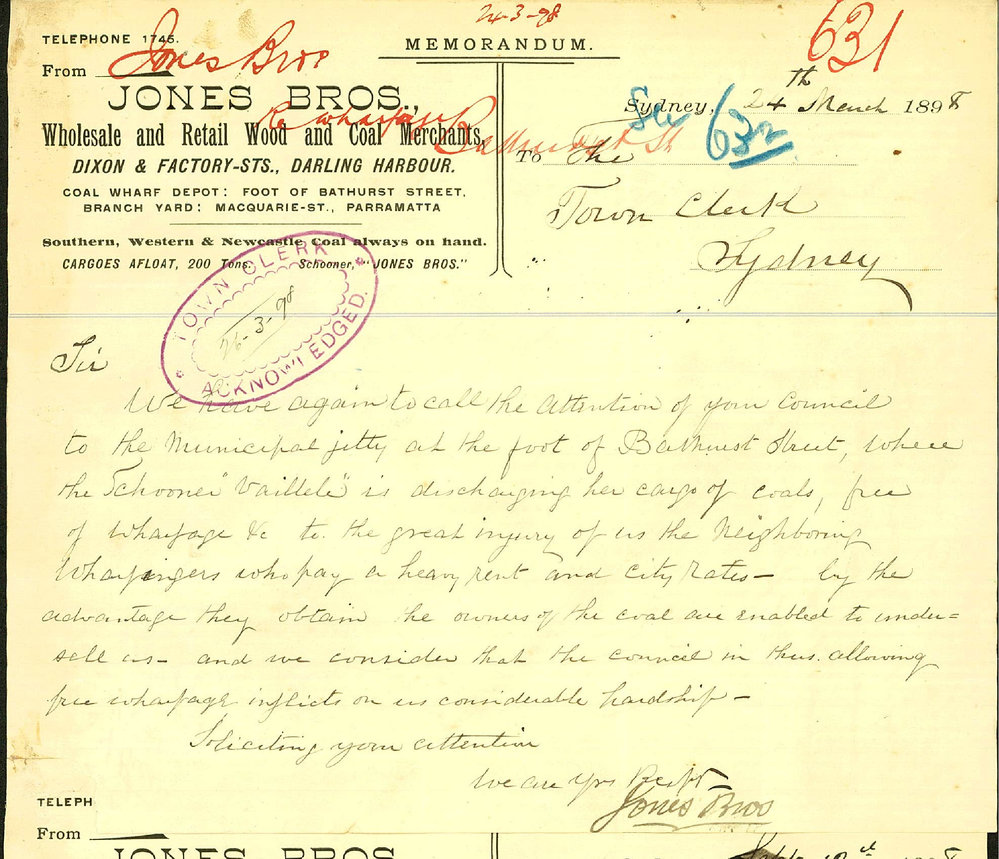 24-3-98
631
TELEPHONE 1745.
MEMORANDUM.
From Jones Bros
JONES BROS.,
Sydney, 24th March 1898
Re wharfage Bathurst St
See 632
Wholesale and Retail Wood and Coal Merchants,
DIXON & FACTORY-STS., DARLING HARBOUR.
To The
COAL WHARF DEPOT: FOOT OF BATHURST STREET,
BRANCH YARD: MACQUARIE-ST., PARRAMATTA
Town Clerk
Sydney
Southern, Western & Newcastle Coal always on hand.
CARGOES AFLOAT, 200 Tons. Schooner, "JONES BROS."
TOWN CLERK
26-3-98
ACKNOWLEDGED.
Sir
We have again to call the attention of your Council
to the Municipal jetty at the foot of Bathurst Street, where
the Schooner "Vaillele" is discharging her cargo of coals, free
of wharfage &c to the great injury of us the Neighboring
Wharfingers who pay a heavy rent and city rates - by the
advantage they obtain the owners of the coal are enabled to under=
sell us - and we consider that the council in thus allowing
free wharfage inflicts on us considerable hardship -
Soliciting your attention
We are Yrs Respt
Jones Bros
TELEPH
From
JONES BROS